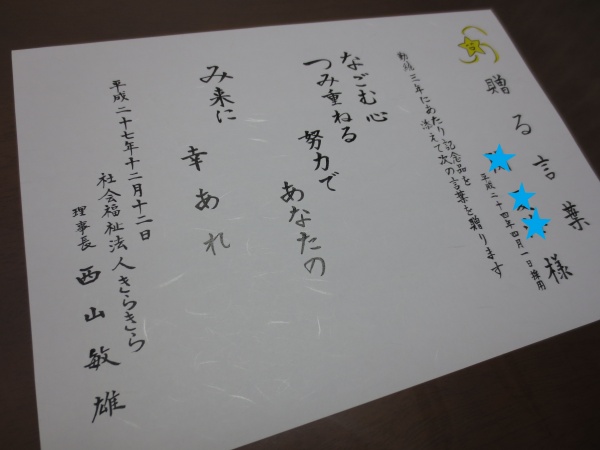 贈る言葉
様
平成二十四年四月一日採用
勤続三年にあたり記念品を
添えて次の言葉を贈ります
なごむ心
つみ重ねる
努力で
あなたの
み来に
幸あれ
平成二十七年十二月十二日
社会福祉法人きらきら
理事長 西山敏雄